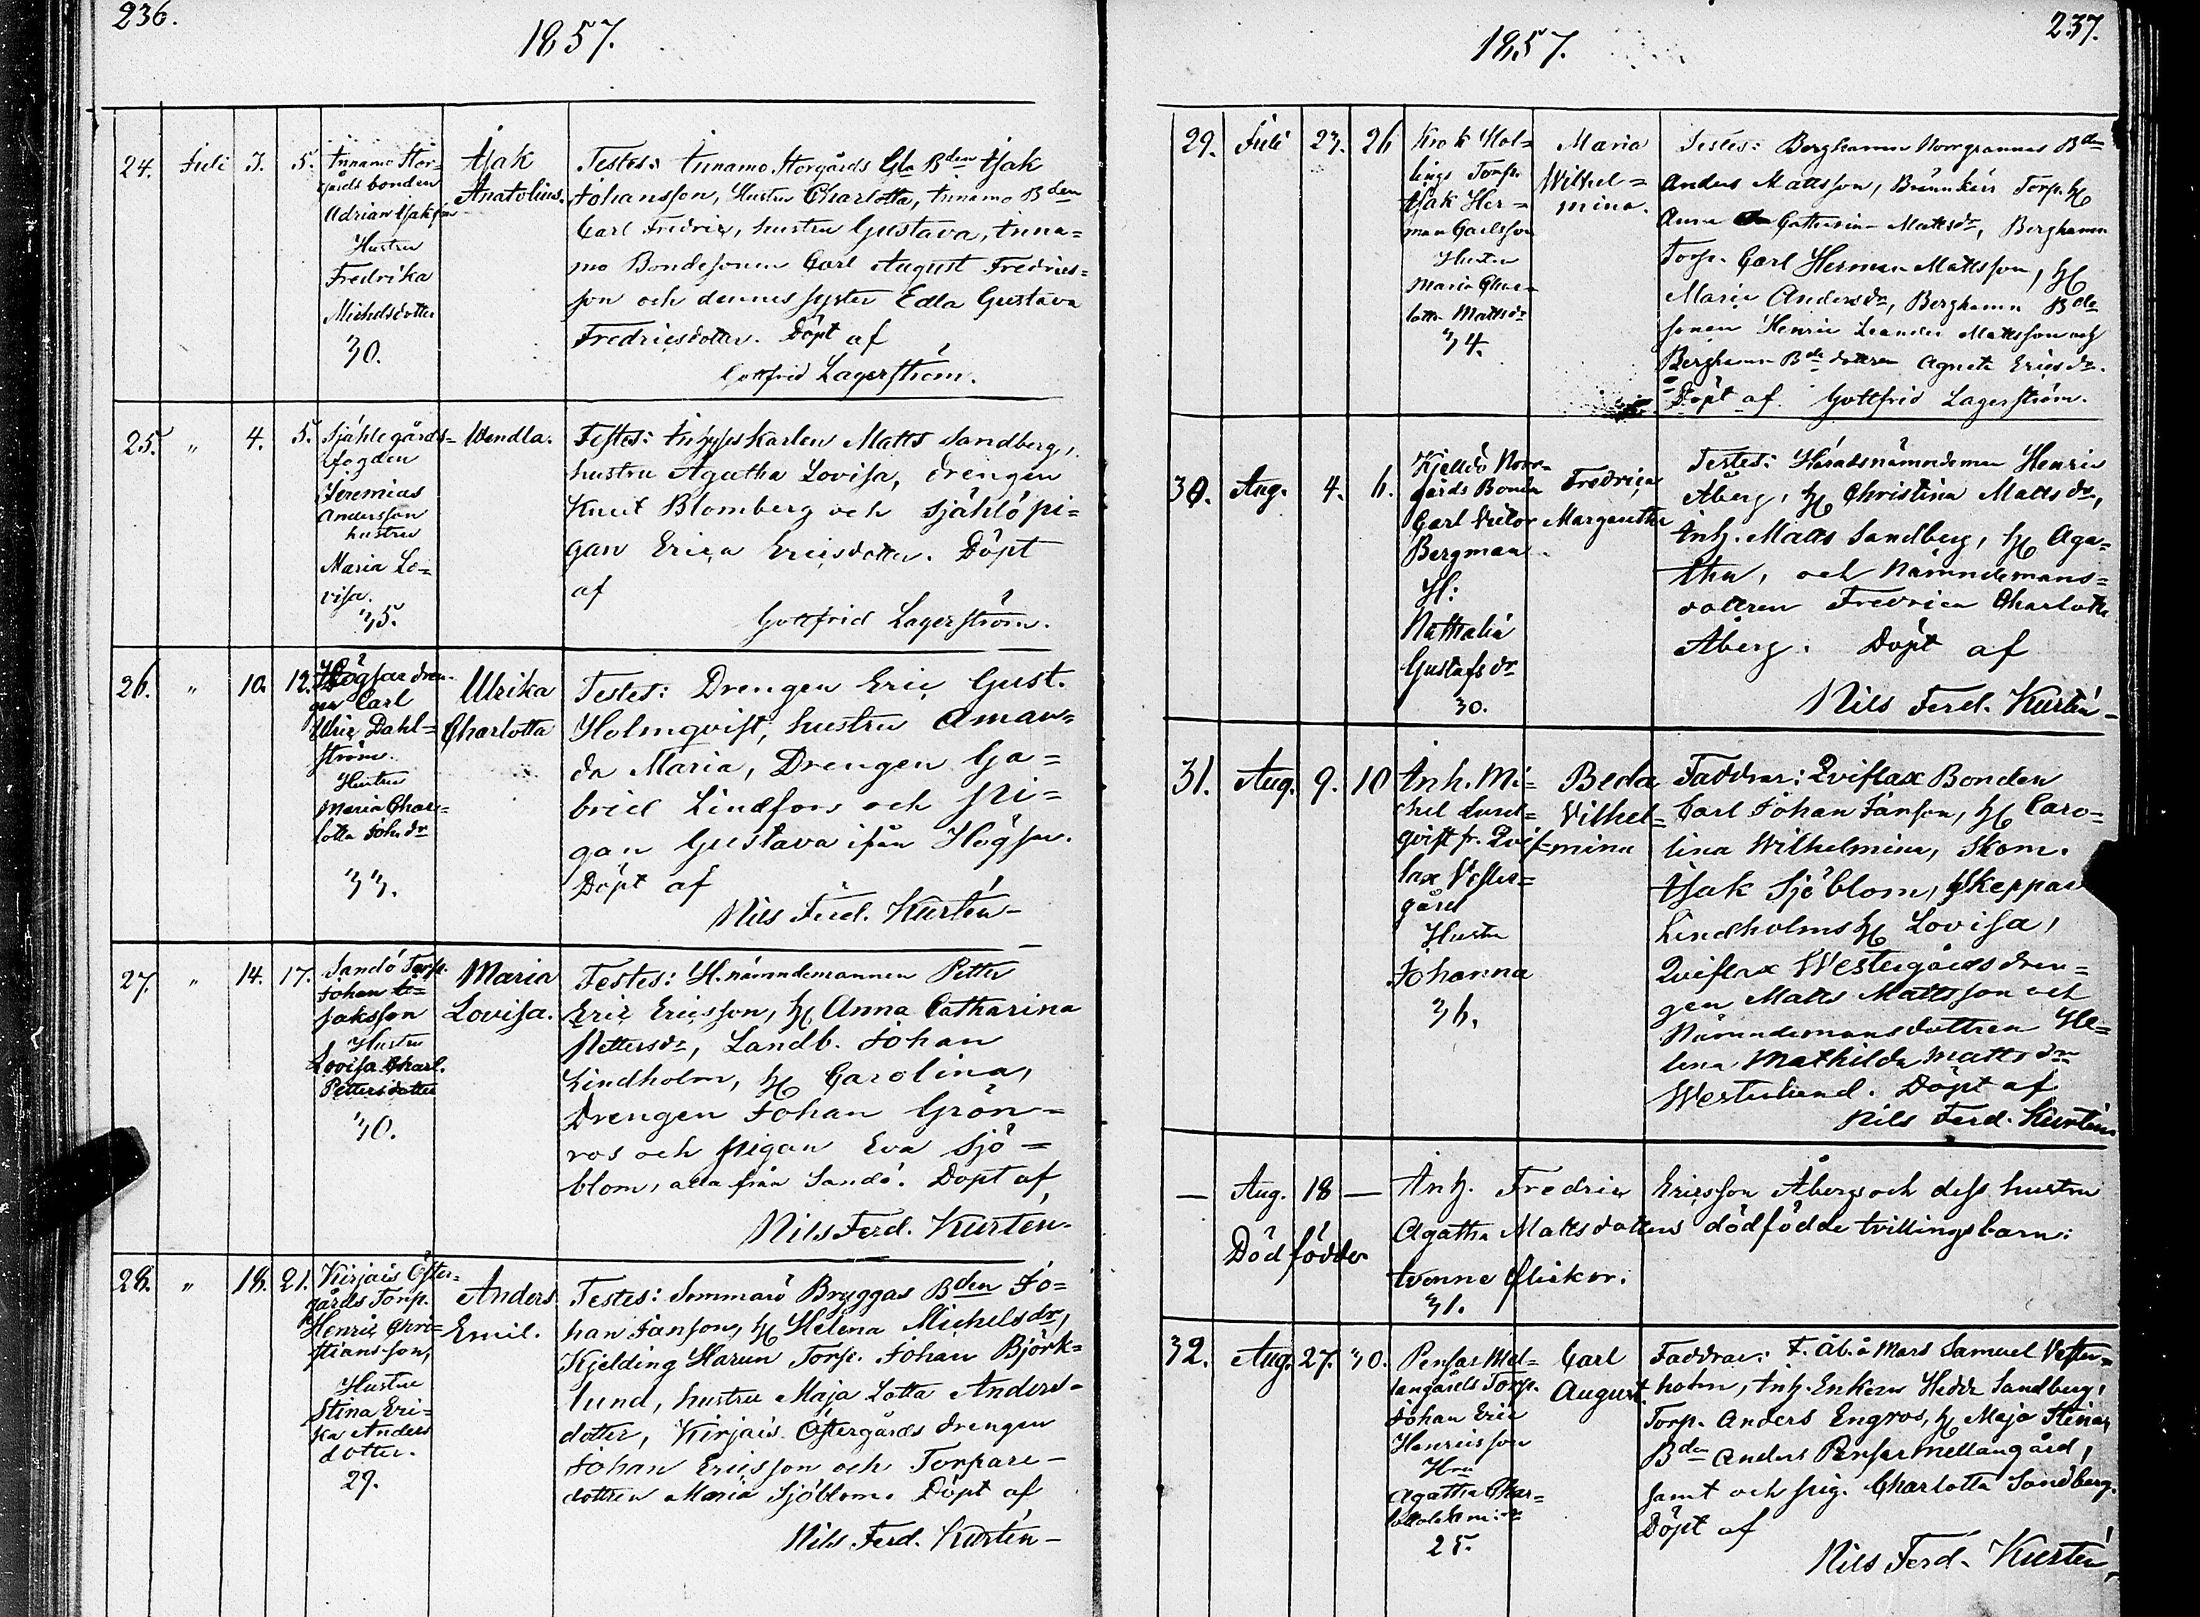 236.
1857.
24. Juli 3. 5.
Innamo Stor-
gårds bonden
Adrian Isaksson
Hustru
Fredrika
Michelsdotter
30.
Isak
Anatolius.
Testes: Innamo Storgårds Gla Bden Isak
Johansson, Hustru Charlotta, Innamo Bden
Carl Fredric, hustru Gustava, Inna=
mo Bondesonen Carl August Fredrics=
son och dennes syster Edla Gustava
Fredricsdotter. Döpt af
Gottfrid Lagerström.
25. " 4. 5.
Sjählö gårds=
fogden
Jeremias
Andersson
hustru
Maria Lo=
visa.
35.
Wendla.
Testes: Inhyseskarlen Matts Sandberg,
hustru Agatha Lovisa, drengen
Knut Blomberg och Sjählö pi=
gan Erica Ericsdotter. Döpt
af
Gottfrid Lagerström.
26. " 10. 12.
Högsar dren-
gen Carl
Ulric Dahl=
ström.
Hustru
Maria Char=
lotta Joh.dr
33.
Ulrika
Charlotta
Testes: Drengen Eric Gust.
Holmqvist, hustru Aman=
da Maria, Drengen Ga=
briel Lindfors och pi=
gan Gustava ifrån Högsar.
Döpt af
Nils Ferd. Kurtén-
27. " 14. 17.
Sandö Torp.
Johan I=
saksson
Hustru
Lovisa Charl.
Pettersdotter
30.
Maria
Lovisa.
Testes: H.nämndemannen Petter
Eric Ericsson, H. Anna Catharina
Pettersdr, Landb. Johan
Lindholm, H. Carolina,
Drengen Johan Grön=
ros och pigan Eva Sjö=
blom, alla från Sandö. Döpt af
Nils Ferd. Kurtén.
28. " 18. 21.
Kirjais Öster=
gårds Torp.
Henric Chri=
stiansson,
Hustru
Stina Eri=
ka Anders
dotter.
29.
Anders
Emil.
Testes: Sommarö Bryggas Bden Jo=
han Janson, H. Helena Michelsdr,
Kjelding Harun Torp. Johan Björk=
lund, hustru Maja Lotta Anders=
dotter, Kirjais Östergårds drengen
Johan Ericsson och Torpare-
dottren Maria Sjöblom. Döpt af
Nils Ferd. Kurtén-
237.
1857.
29. Juli 23. 26
Krok Hol=
lings Torp.
Isak Her=
man Carlsson
Hustru
Maria Char=
lotta Mattsdr
34.
Maria
Wilhel=
mina.
Testes: Berghamn Norrgrannas Bden
Anders Mattsson, Brännkärr Torp. H.
Anna Catharina Mattsdr, Berghamn
Torp. Carl Herman Mattsson, H.
Maria Andersdr, Berghamn Bde
sonen Henric Leander Mattsson och
Berghamn Bde dottren Agneta Ericsdr.
Döpt af Gottfrid Lagerström.
30. Aug. 4. 6.
Kjelldö Norr=
gårds Bonden
Carl Victor
Bergman
H:
Nathalia
Gustafsdr
30.
Fredrica
Margaretha
Testes: Häradsnämndeman Henric
Åberg, H. Christina Mattsdr,
Inh. Matts Sandberg, H. Aga=
tha, och Nämndemans=
dottren Fredrica Charlotta
Åberg. Döpt af
Nils Ferd. Kurtén-
31. Aug. 9. 10
Inh. Mi=
chel Lund=
qvist fr. Qvif=
lax Vester=
gård
Hustru
Johanna
36.
Beda
Vilhel=
mina
Faddrar: Qviflax Bonden
Carl Johan Janson, H. Caro=
lina Wilhelmina, Skom.
Isak Sjöblom, Skeppar
Lindholms H. Lovisa,
Qviflax Westergårds dren=
gen Matts Mattsson och
Nämndemansdottren He=
lena Mathilda Mattsdr
Westerlund. Döpt af
Nils Ferd. Kurtén
— Aug. 18 —
Död födde
Inh. Fredric Ericsson Åbergs och dess hustru
Agatha Mattsdotters dödfödde tvillingsbarn:
tvenne flickor.
31.
32. Aug. 27. 30.
Pensar Mel=
langårds Torp.
Johan Eric
Henricsson
Hru
Agatha Char=
25.
Carl
August.
Faddrar: F. Åb. å Mars Samuel Vester=
holm, Inh. Enkan Hedda Sandberg,
Torp. Anders Engros, H. Maja Stina,
Bden Anders Pensar Mellangård,
samt och pig. Charlotta Sandberg.
Döpt af
Nils Ferd. Kurtén,